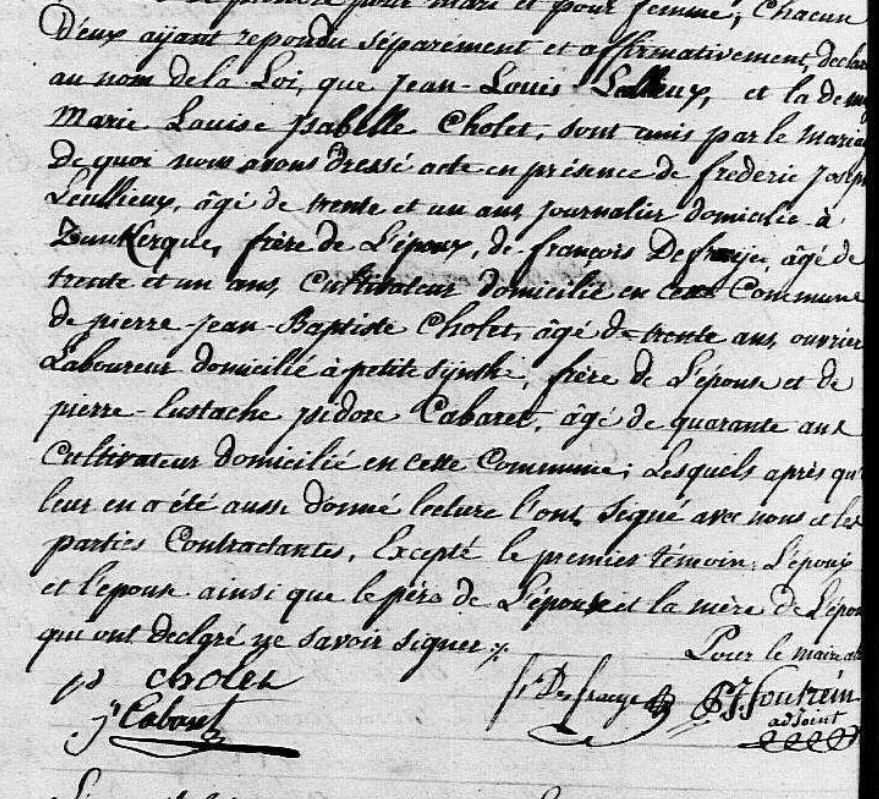 pour mari et pour femme, chacun
D'eux ayant repondu séparément et affirmativement, declar
au nom de la Loi, que Jean-Louis Leullieux, et la dem
Marie Louise Isabelle Cholet, sont unis par le maria
De quoi nous avons Dressé acte en présence de frederic Josep
Leullieux, âgé de trente et un ans, journalier domicilié à
Dunkerque, frère de L'époux, de françois Defraeye, âgé de
trente et un ans, Cultivateur domicilié en cette Commune
de pierre-Jean-Baptiste Cholet, âgé de trente ans, ouvrier
Laboureur domicilié à petite synthe, frère de L'épouse et de
pierre-Eustache Isidore Cabaret, âgé de quarante ans
Cultivateur domicilié en cette Commune; Lesquels après qu'
leur en a été aussi Donné lecture l'ont signé avec nous et les
parties Contractantes, Excepté le premier témoin, L'époux
et l'épouse ainsi que le père de L'épouse et la mère de L'épou
qui ont declaré ne savoir signer ./.
Pour le maire
pj cholet
f. Defraeye
adjoint